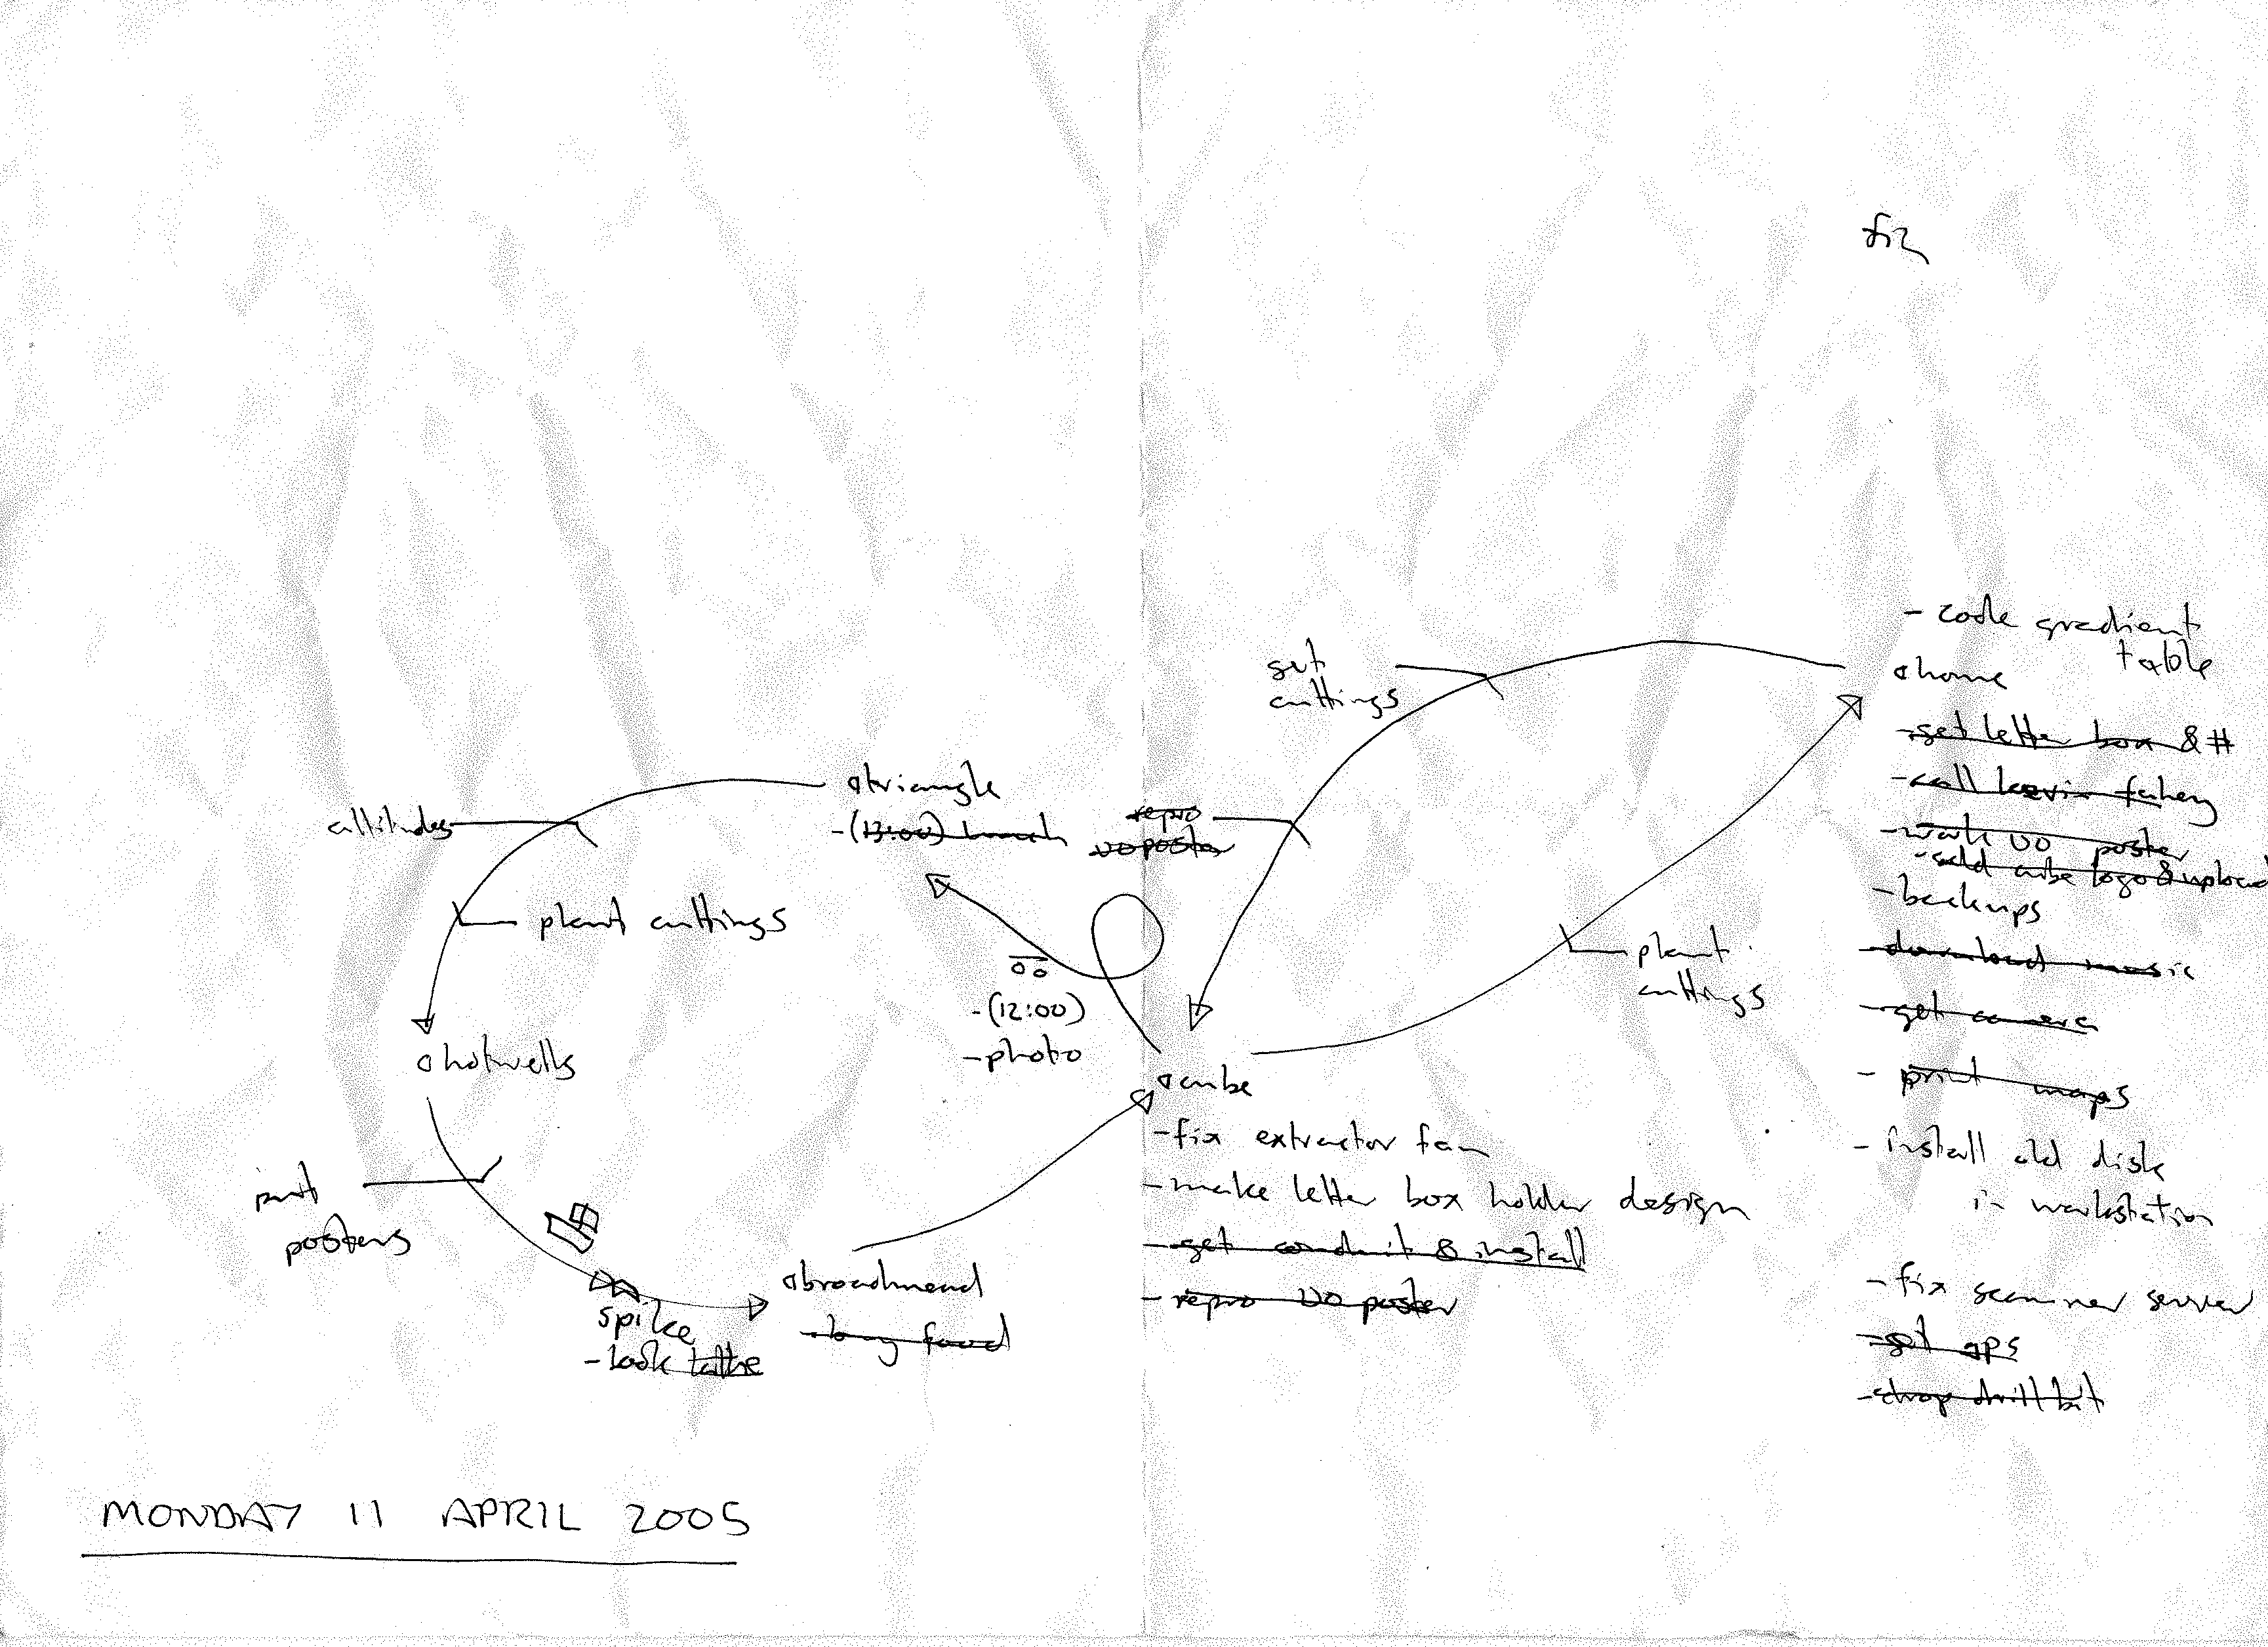 - code gradient
table
home
- get letter box & #
- call kevin fahey
- work UO poster
- add cube logo & upload
- backups
- download music
- get camera
- print maps
- install old disk
in workstation
- fix scanner server
- get gps
- chop drill bit
get
cuttings
repro
UO poster
plant
cuttings
triangle
- (13:00) lunch
altitudes
plant cuttings
- (12:00)
- photo
hotwells
cube
- fix extractor fan
- make letter box holder design
- get conduit & install
- repro UO poster
put
posters
spike
- look
broadmead
- buy food
MONDAY 11 APRIL 2005